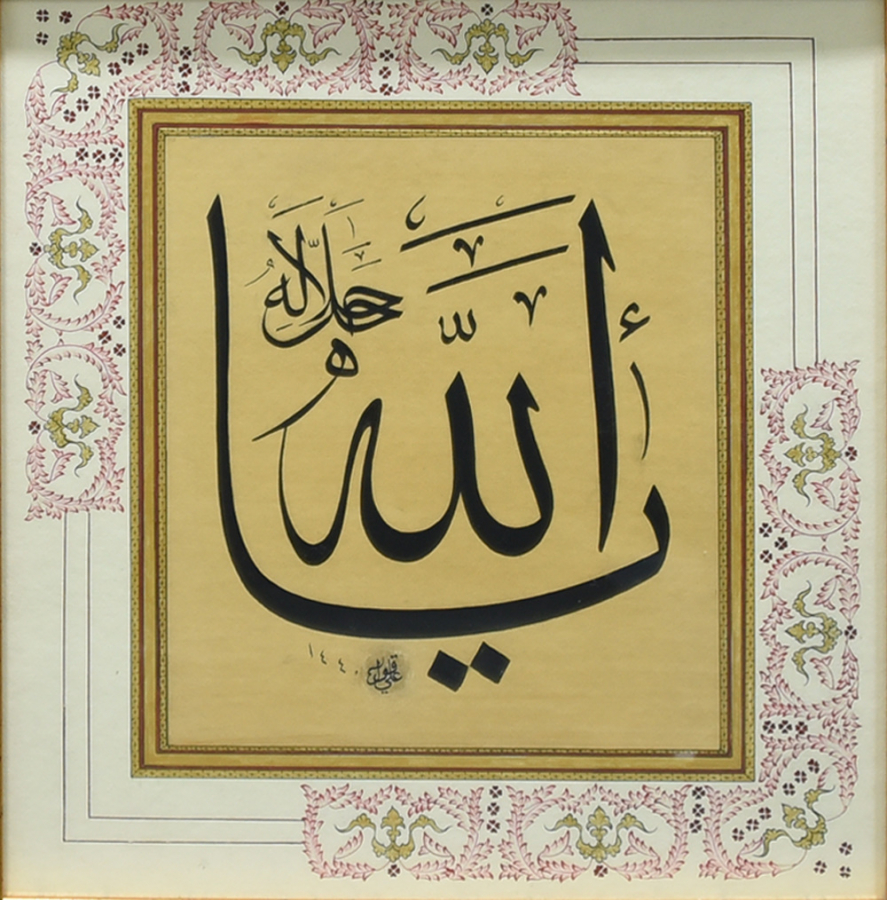 يا ألله
جل جلاله
١٤٤٠